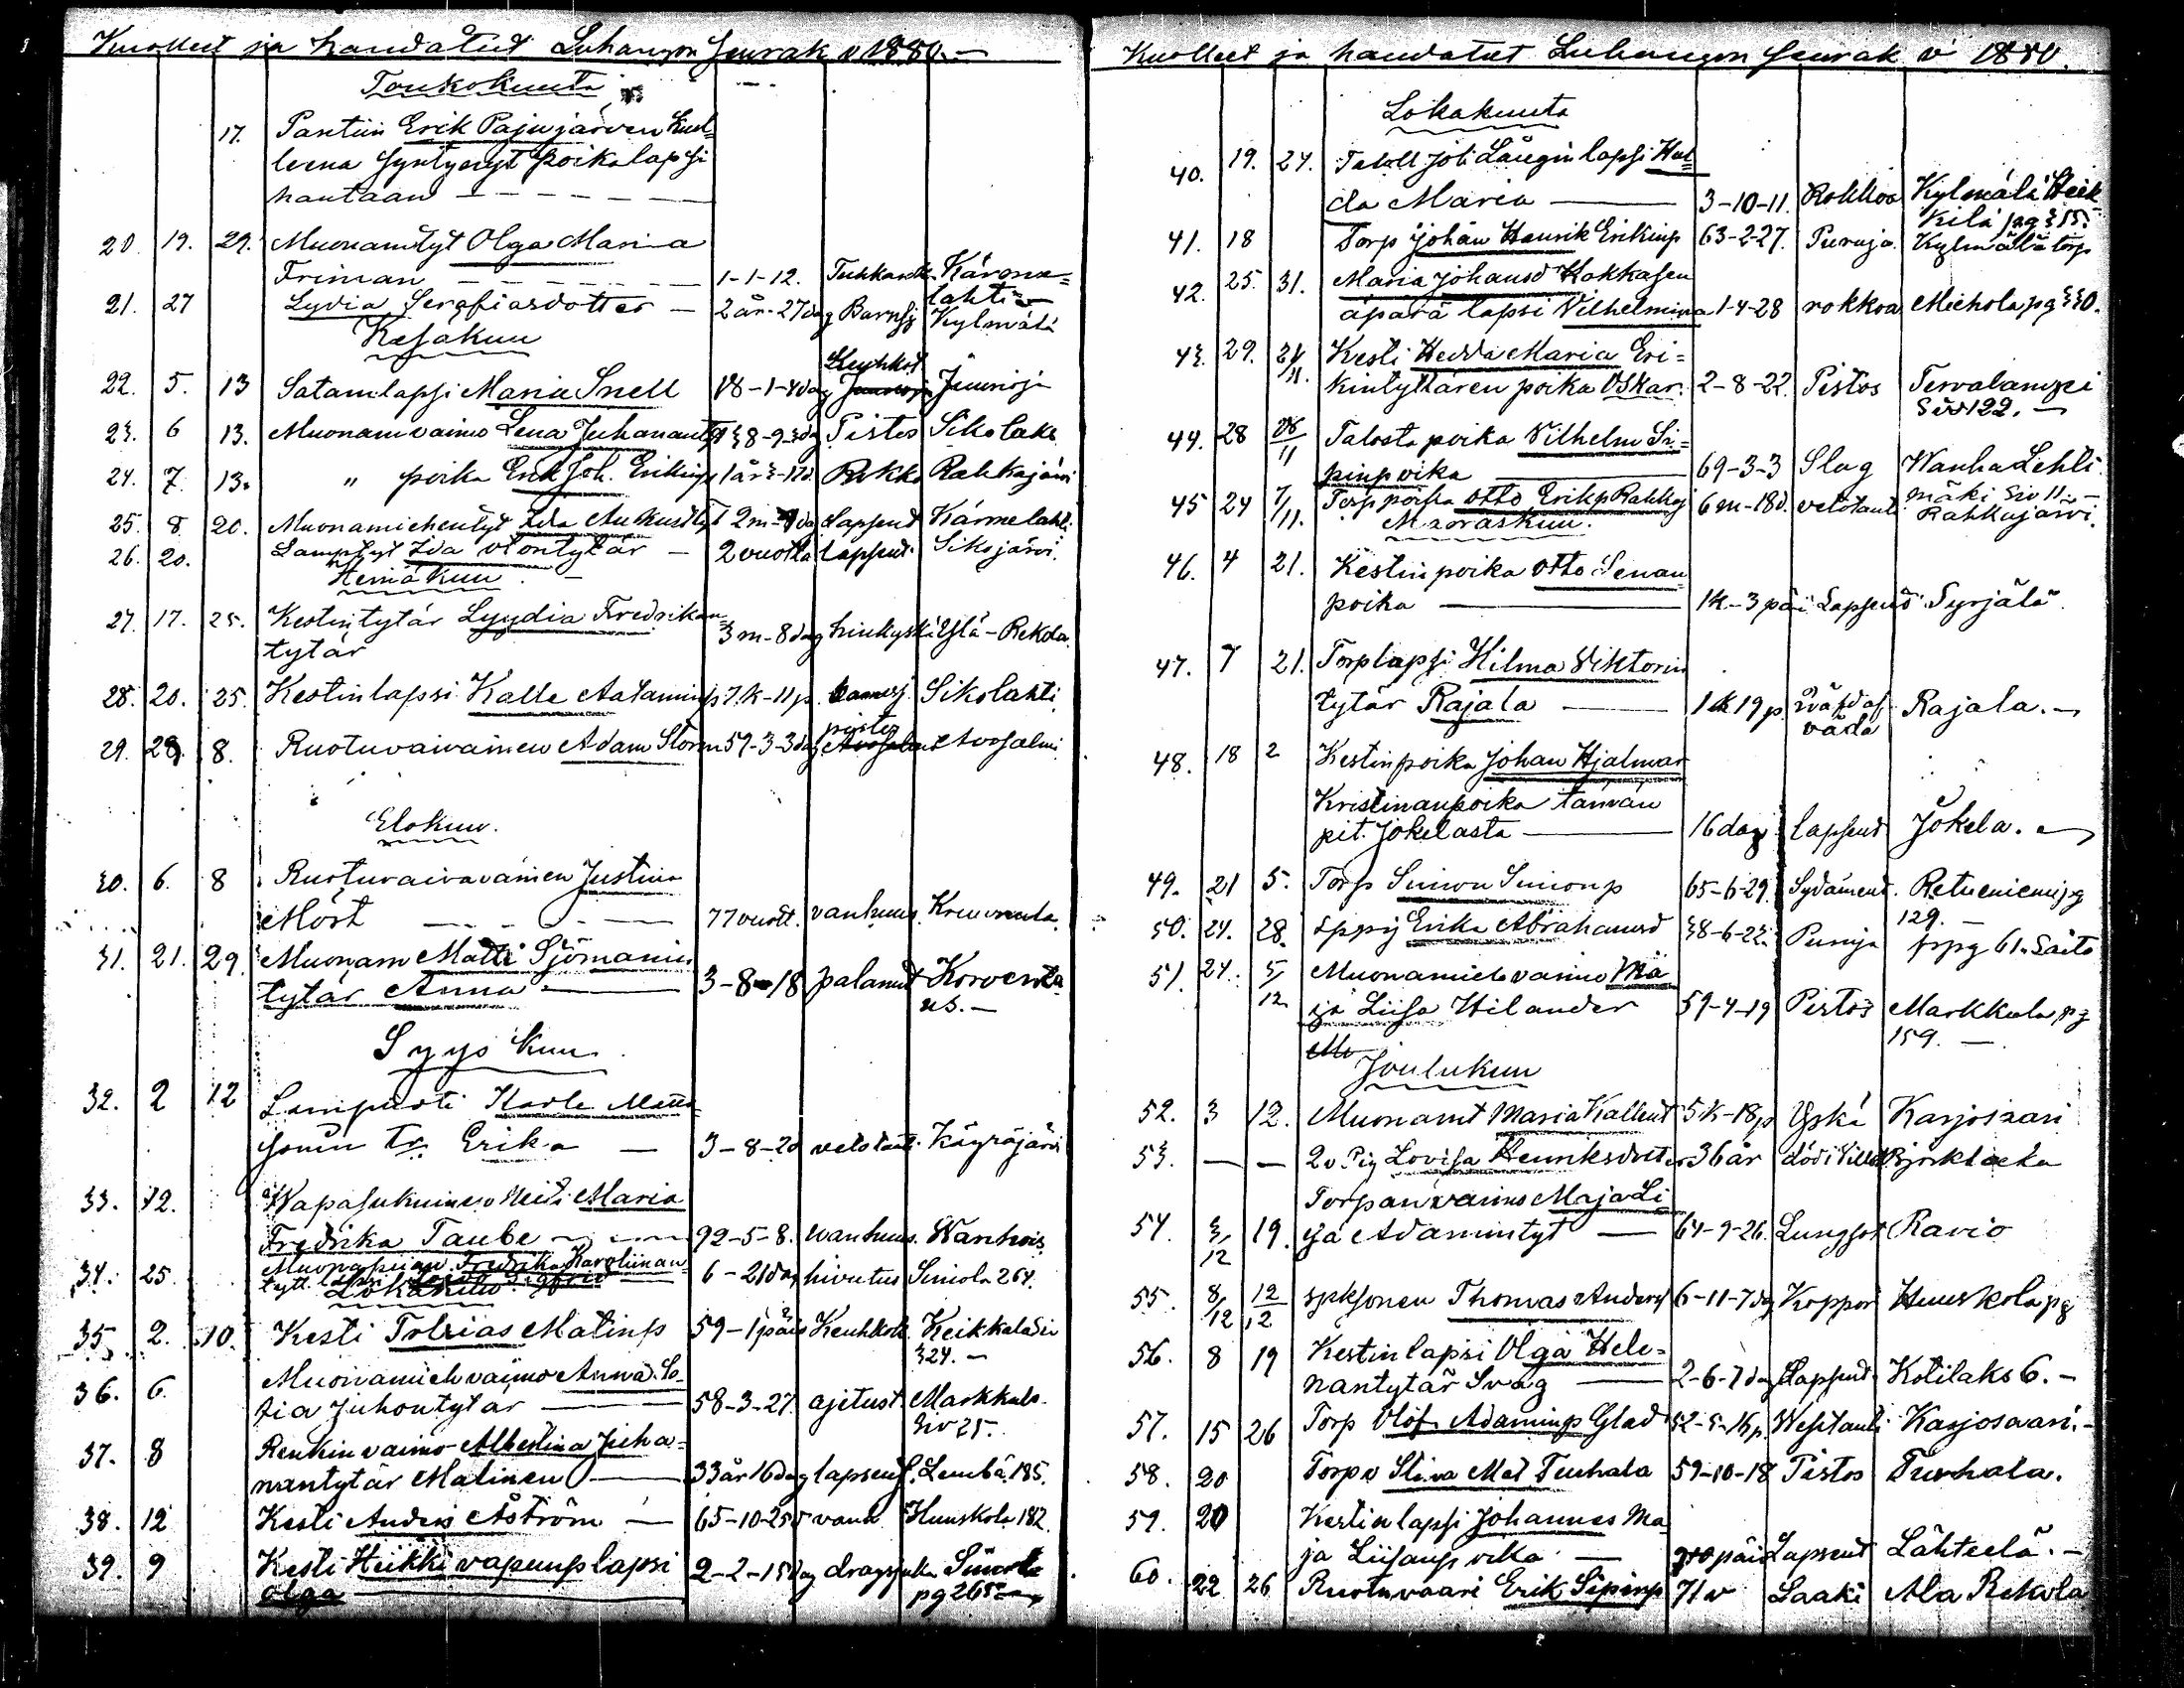 Kuolleet ja haudatut Luhangon Seurak v 1880.
Toukokuuta
17. Pantiin Erik Pajujärven kuol=
leena syntynyt poikalapsi
hautaan
20. 19. 29. Muonamtyt Olga Maria
Friman 1-1-12. Tuhkarok. Kärme=
lahti
21. 27 Lydia Serafiasdotter 2 år-27 dag Barnsj Kylmälä
Kesäkuu
Keuhkot
22. 5. 13 Satamlapsi Maria Snell 18-1-4 dag Juusoja
23. 6 13. Muonamvaimo Lena Juhanant 38-9-3 dag Pistos Sikolaks
24. 7. 13. " poika Erik Joh. Erikinp 1 år 3-17 d. Rokko Rahkajärvi
25. 8 20. Muonamiehentyt Ida Aukustt 2m-9 da Lapsent Kärmelahti
26. 20. Lamptyt Ida Otontytär 2 vuotta lapsent. Sikojärvi
Heinäkuu
27. 17. 25. Kestintytär Lyydia Fredrikan=
tytär 3 m-8 dag hinkyskä Ylä-Rekola
28. 20. 25. Kestinlapsi Kalle Aataminp 7. k-11 p. Sikolahti
pistos
29. 29. 8. Ruotuvaivainen Adam Storm 59-3-3 dag Avosalmi Avosalmi
Elokuu.
30. 6. 8 Ruotuvaivainen Justina
Möst 77 vuott. vanhuus.
31. 21. 29. Muonam Matti Sjömanin
tytär Anna 3-8-18 palanut Korvenka
us.
Syys kuu
32. 2 12 Lampuoti Kaarle Matts
sonin tr. Erika 3-8-20 vetotaut. Käyräjärvi
33. 12. Wapasukuinen Neiti Maria
Fredrika Taube 92-5-8. wanhuus. Wanhois
34. 25. Muonapiian Fredrika Karoliinan
tytt. lapsi Sigfrid 6-21 dag hivutus Siniola 264.
Lokakuu.
35. 2. 10. Kesti Tobias Matinp 59-1 päiv Keuhkot. Keikkala Siv
324.
36. 6. Muonamiehvaimo Anna So=
fia Juhontytär 58-3-27. ajetust. Markkula
Siv 25.
37. 8 Renkin vaimo Albertina Juha=
nantytär Matinen 33 år 16 dag lapsent. Lembä. 185.
38. 12 Kesti Anders Åström 65-10-25 d vanh. Huuskola 182.
39. 9 Kesti Heikki vapuunp lapsi
Olga 2-2-15 dag dragsjuka Siniola
pg 265
Kuolleet ja haudatut Luhangon Seurak v 1880.
Lokakuuta
40. 19. 24. Taloll Joh Längin lapsi Hul=
da Maria 3-10-11. Rokkoa Kylmälä Heik
kilä pag 315.
41. 18 Torp Johan Henrik Erikinp 63-2-27. Punuja. Kylmälä torp
42. 25. 31. Maria Johansd Kokkasen
äpärä lapsi Vilhelmina 1-4-28 rokkoa Miehola pg 330.
43. 29. 21/11. Kesti Hedda Maria Eri=
kintyttären poika Oskar. 2-8-22. Pistos Tervalamppi
Siv 122.
44. 28 18/11 Talosta poika Vilhelm Si=
pinpoika 69-3-3 Slag Wanha Lehti
mäki Siv 11.
45 24 7/11. Torp poika Otto Erikp Rahkaj 6 m-18 d. vetotauti Rahkajärvi.
Marraskuu.
46. 4 21. Kestin poika Otto Senan
poika 1 k-3 päi Lapsend Syrjälä.
47. 7 21. Torplapsi Hilma Viktorin
tytär Rajala 1 k 19 p. Rajala.
48. 18 2 Kestinpoika Johan Hjalmar
Kristinanpoika tämän
pit. Jokelasta 16 dag lapsent Jokela.
49. 21 5. Torp Simon Simonp 65-6-29. Sydäment. Retueniemi pg
129.
50. 24. 28. Erika Abrahamsd 38-6-22. Punuja pg 61. Saito
51. 24. 5/12 Muonamieh vaimo Ma
ja Liisa Hilander 59-4-19 Pistos Markkula pg
159.
Joulukuu
52. 3 12. Muonamt Maria Kallent 5 k-18 p Yskä Karjosaari
53. — — Lovisa Henriksdotter 36 år
54. 3/12 19. Torpanvaimo Maja Li
isa Adamintyt 64-9-26. Lungsot Ravio
55. 8/12 12/12 Thomas Anders 6-11-7 dag Koppor Huuskola pg
56. 8 19 Kestin lapsi Olga Hele=
nantytär Svag 2-6-7 dag Lapsent Kotilaks 6.
57. 15 26 Torp Olof Adaminp Glad 52-5-16 p. Wesitauti Karjosaari.
58. 20 Torpv Stina Mat Tuuhala 59-10-18 Pistos Tuuhala.
59. 20 Kestin lapsi Johannes Ma
ja Liisanp vika päiv Lapsent Lähteelä.
60. 22 26 Ruotuvaari Erik Sipinp 71 v Laaki Ala Rekola